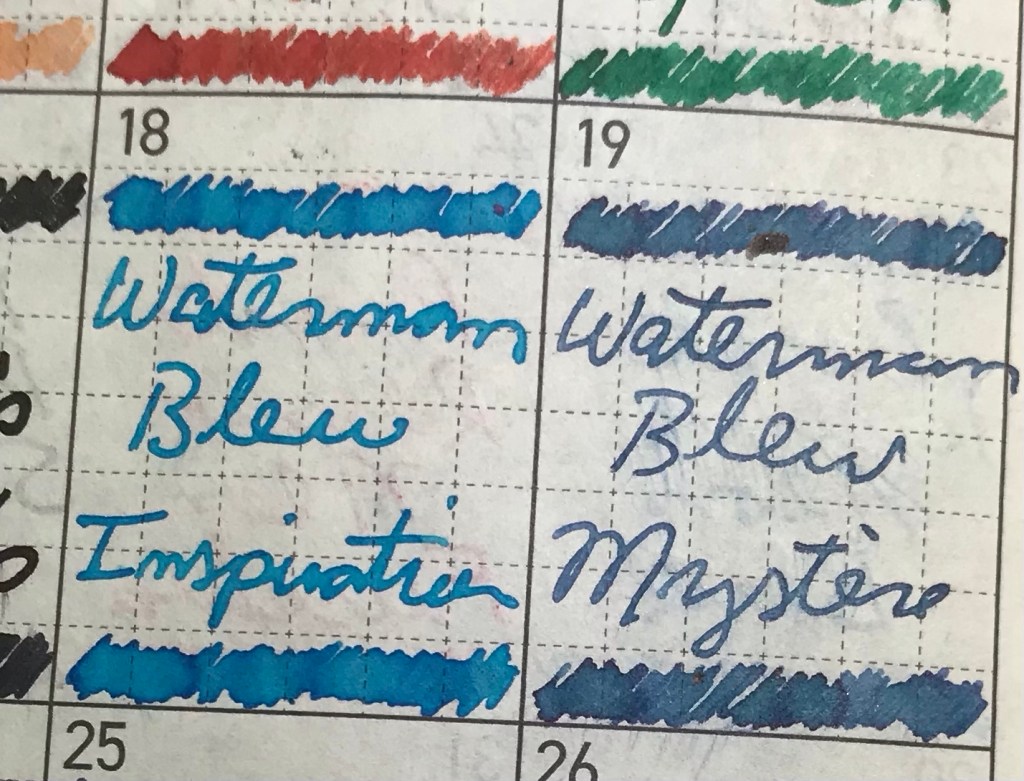 18
Waterman
Bleu
Inspiration
19
Waterman
Bleu
Mystère
25
26